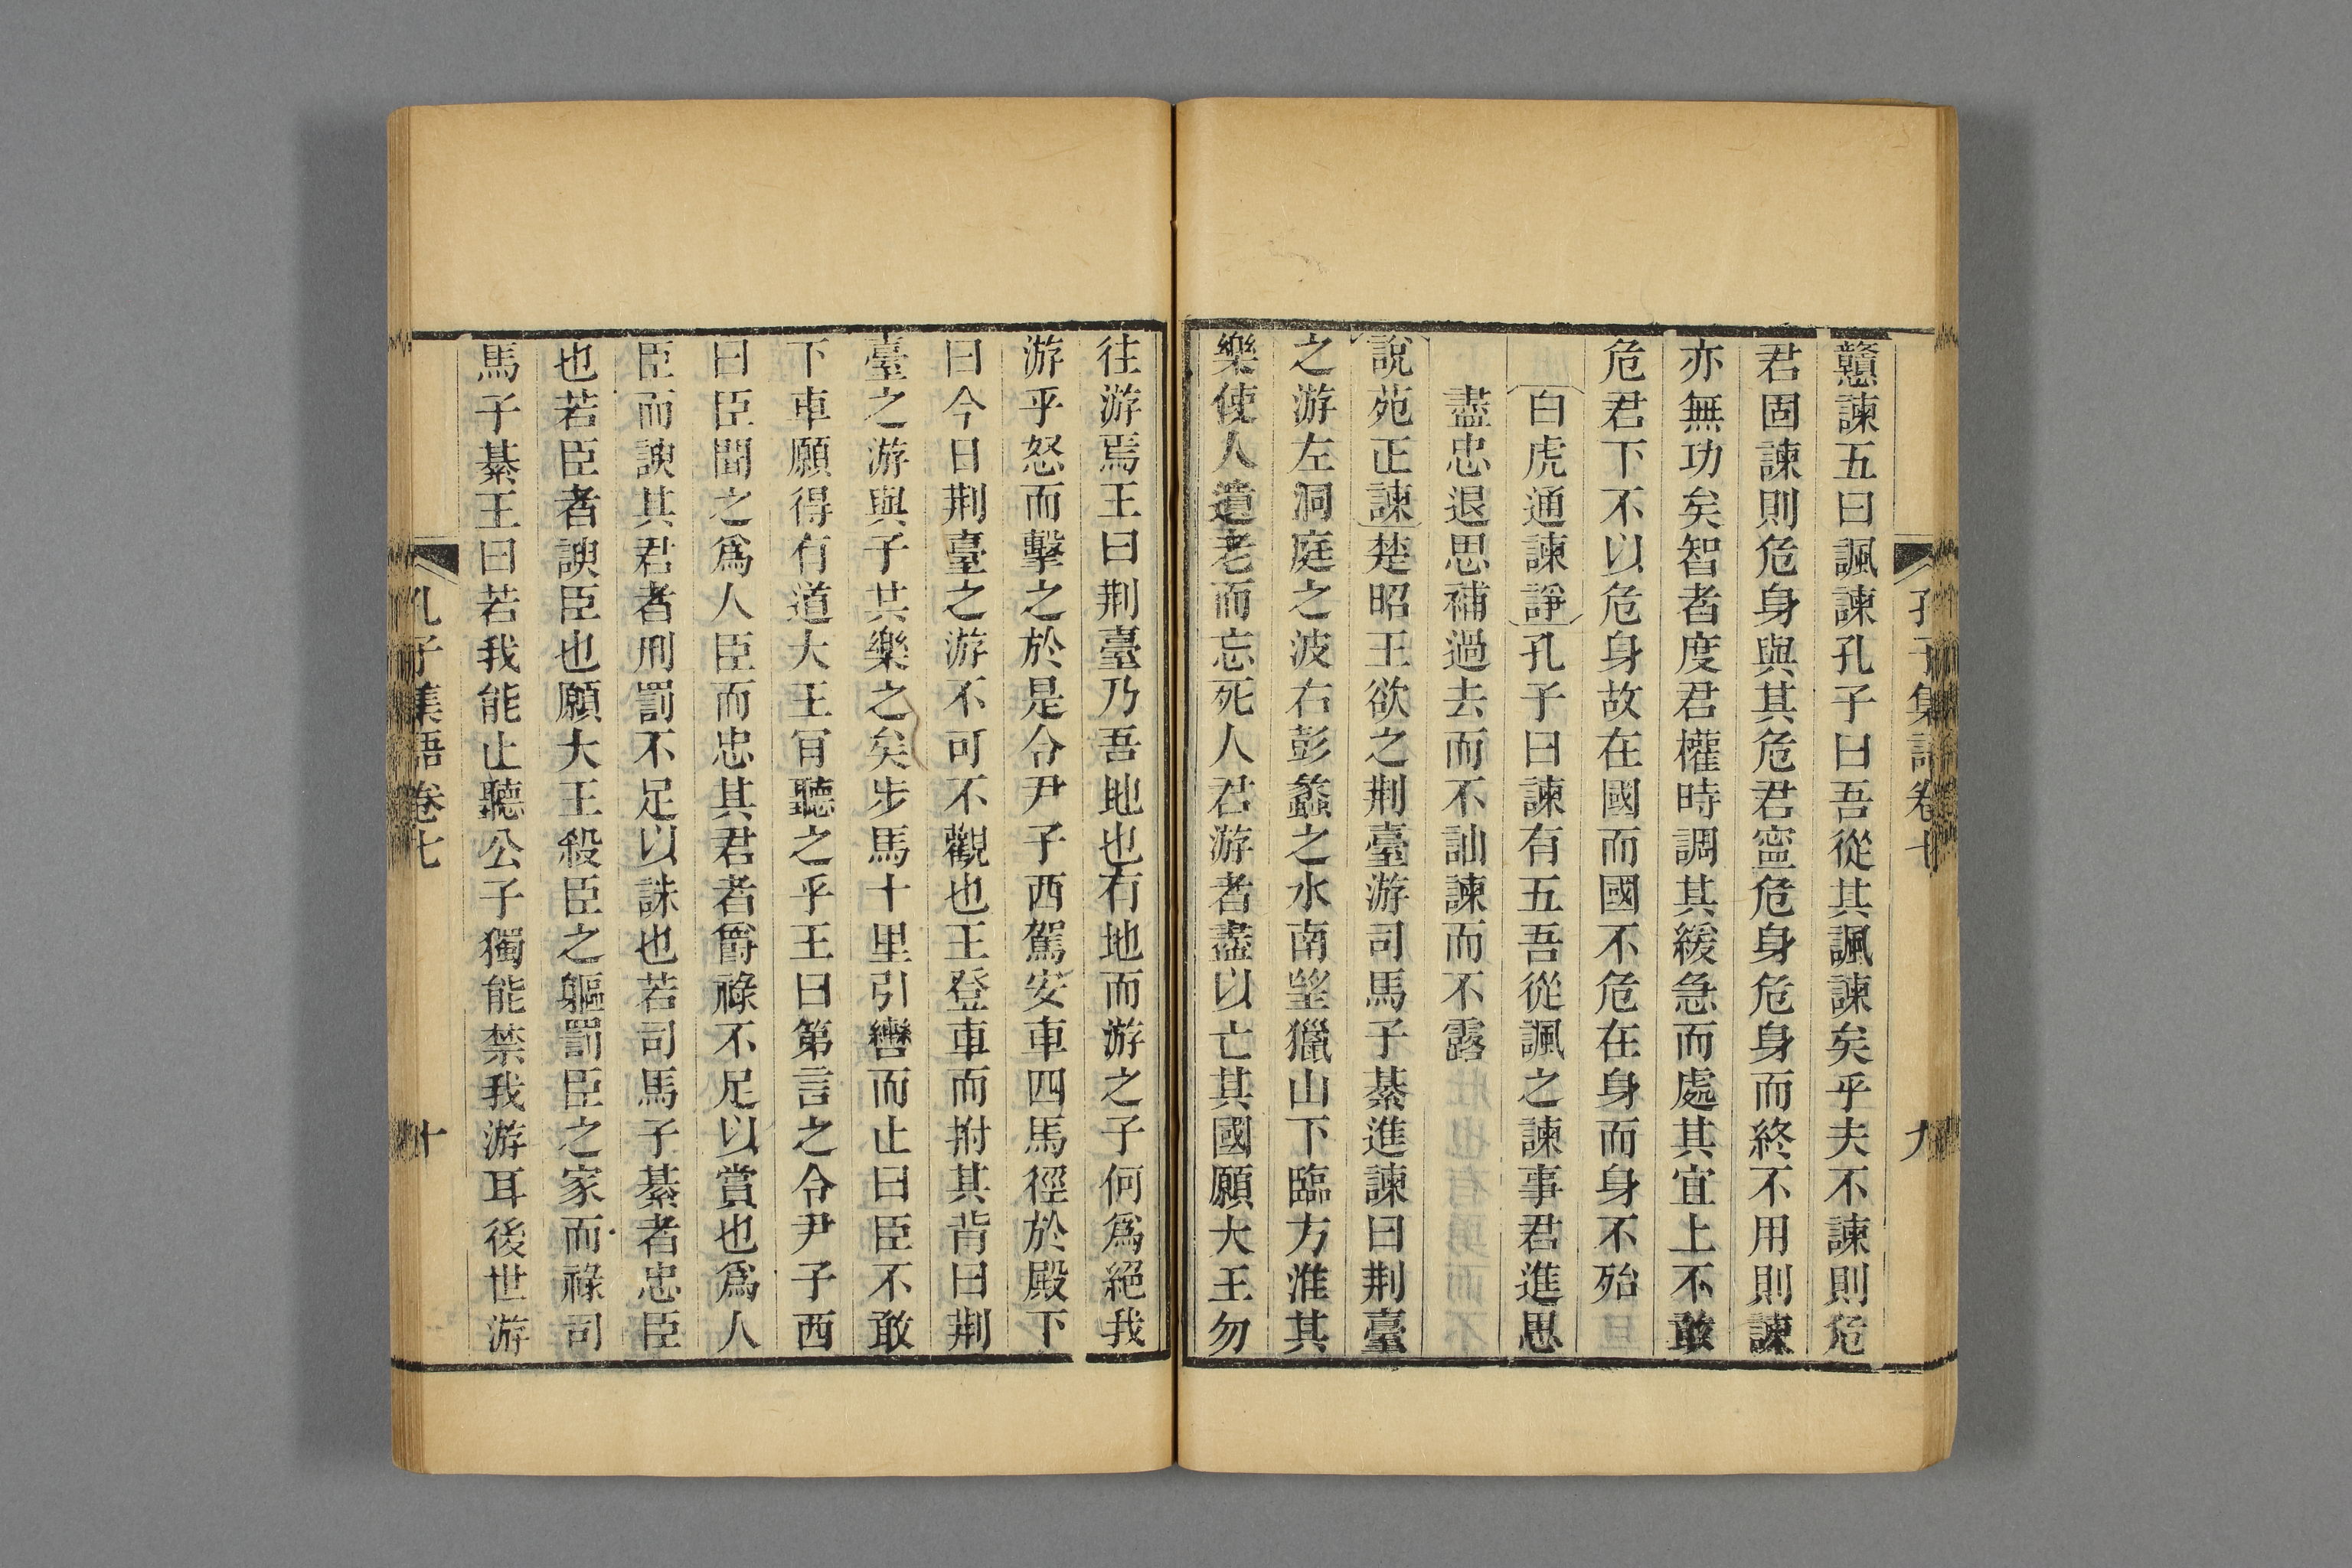 孔子集語卷七
九
戇諫五曰諷諫孔子曰吾從其諷諫矣乎夫不諫則危
君固諫則危身與其危君寧危身危身而終不用則諫
亦無功矣智者度君權時調其緩急而處其宜上不敢
危君下不以危身故在國而國不危在身而身不殆
白虎通諫諍孔子曰諫有五吾從諷之諫事君進思
盡忠退思補過去而不訕諫而不露
說苑正諫楚昭王欲之荆臺游司馬子綦進諫曰荆臺
之游左洞庭之波右彭蠡之水南望獵山下臨方淮其
樂使人遺老而忘死人君游者盡以亡其國願大王勿
往游焉王曰荆臺乃吾地也有地而游之子何爲絕我
游乎怒而擊之於是令尹子西駕安車四馬徑於殿下
曰今日荆臺之游不可不觀也王登車而拊其背曰荆
臺之游與子共樂之矣步馬十里引轡而止曰臣不敢
下車願得有道大王肯聽之乎王曰第言之令尹子西
曰臣聞之爲人臣而忠其君者爵祿不足以賞也爲人
臣而諛其君者刑罰不足以誅也若司馬子綦者忠臣
也若臣者諛臣也願大王殺臣之軀罰臣之家而祿司
馬子綦王曰若我能止聽公子獨能禁我游耳後世游
孔子集語卷七
十